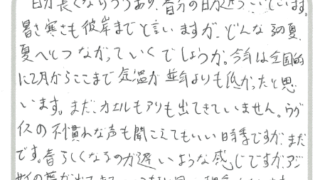 日が長くなりつつあり、春分の日が近づいています。
暑さ寒さも彼岸までと言いますが、どんな初夏、
夏へとつながっていくでしょうか。今年は全国的
に2月からここまで気温が華年よりも低かったと思
います。まだ、カエルもアリも出てきていません。ウグ
イスの不慣れな声も聞こえてもいい時季ですが、まだ
です。春らしくなるのが遅いような感じですが、アジ